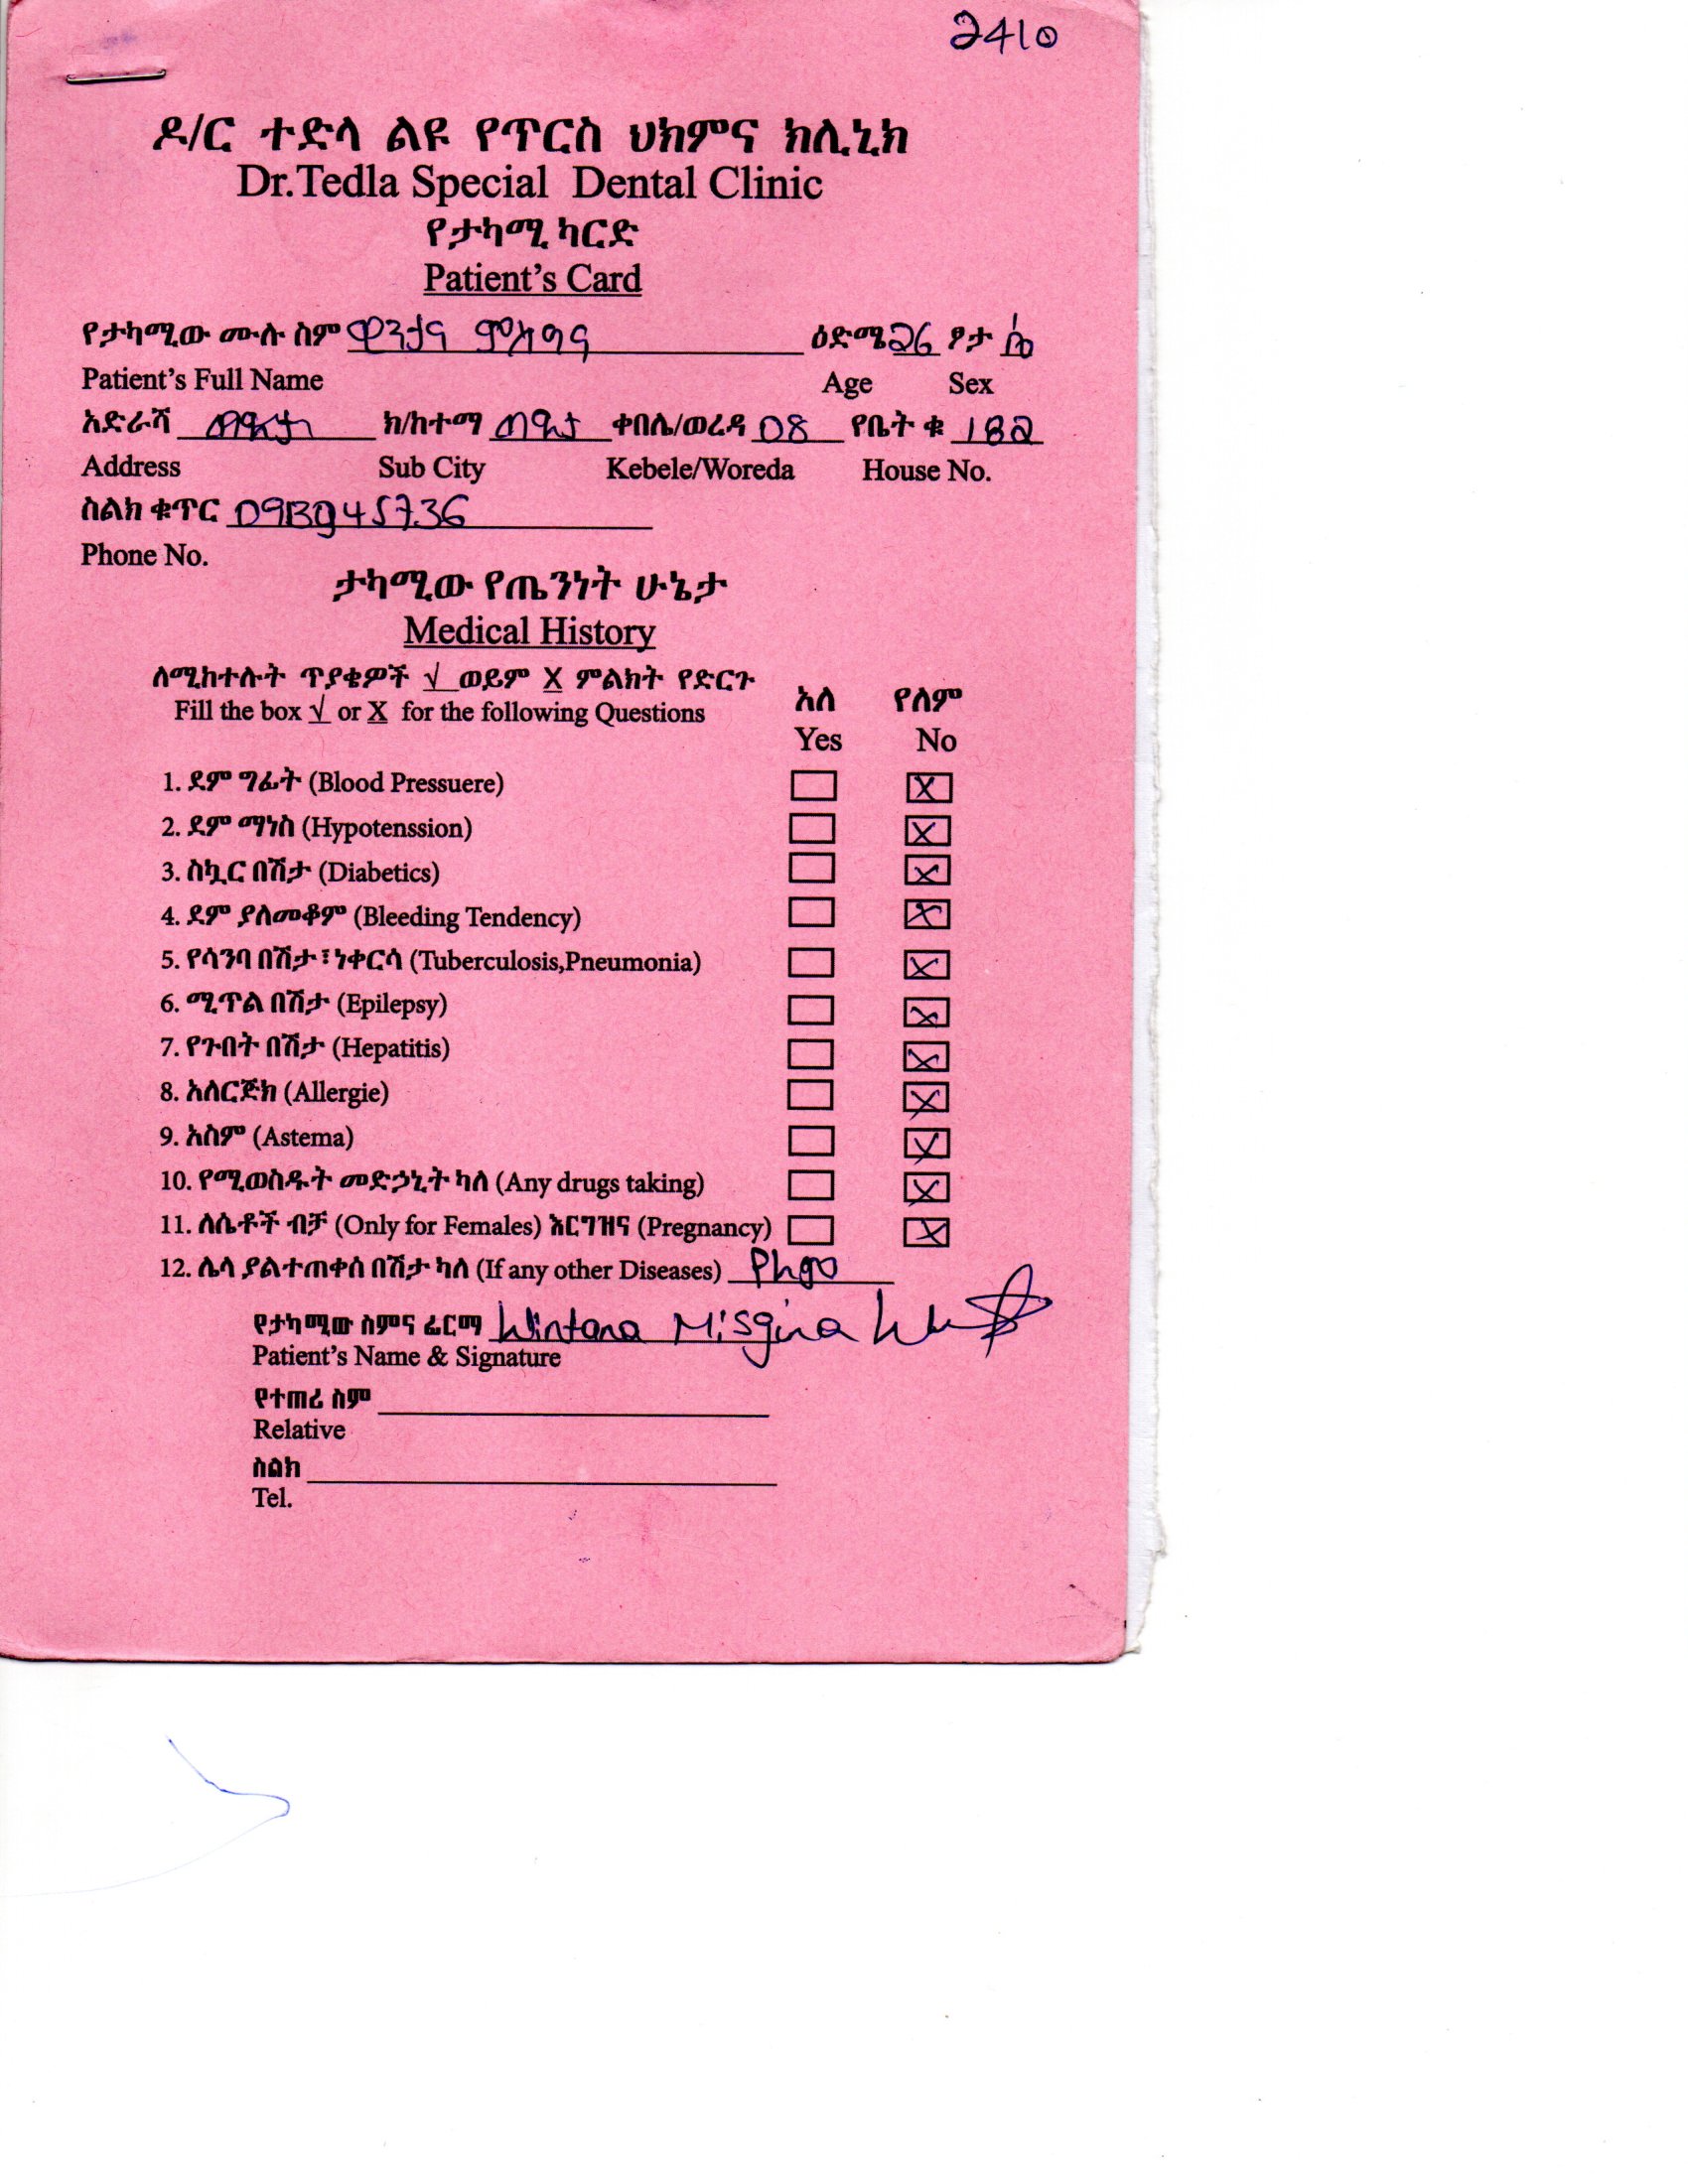 2410
ዶ/ር ተድላ ልዩ የጥርስ ህክምና ክሊኒክ
Dr.Tedla Special Dental Clinic
የታካሚ ካርድ
Patient's Card
የታካሚው ሙሉ ስም ዊንታና ምስግና ዕድሜ 26 ፆታ ሴ
Patient's Full Name Age Sex
አድራሻ ክ/ከተማ ቀበሌ/ወረዳ 08 የቤት ቁ 182
Address Sub City Kebele/Woreda House No.
ስልክ ቁጥር
Phone No.
ታካሚው የጤንነት ሁኔታ
Medical History
ለሚከተሉት ጥያቄዎች √ ወይም X ምልክት የድርጉ
Fill the box √ or X for the following Questions
አለ የለም
Yes No
1. ደም ግፊት (Blood Pressuere) X
2. ደም ማነስ (Hypotenssion) X
3. ስኳር በሽታ (Diabetics) X
4. ደም ያለመቆም (Bleeding Tendency) X
5. የሳንባ በሽታ፣ነቀርሳ (Tuberculosis,Pneumonia) X
6. ሚጥል በሽታ (Epilepsy) X
7. የጉበት በሽታ (Hepatitis) X
8. አለርጅክ (Allergie) X
9. አስም (Astema) X
10. የሚወስዱት መድኃኒት ካለ (Any drugs taking) X
11. ለሴቶች ብቻ (Only for Females) እርግዝና (Pregnancy) X
12. ሌላ ያልተጠቀሰ በሽታ ካለ (If any other Diseases) የለም
የታካሚው ስምና ፊርማ Wintana Misgina
Patient's Name & Signature
የተጠሪ ስም
Relative
ስልክ
Tel.